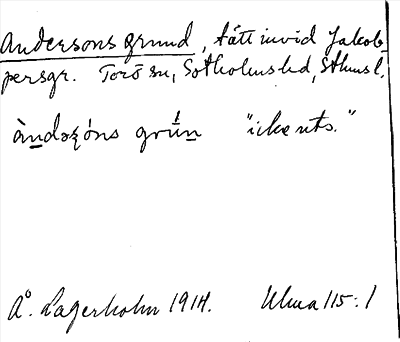 Andersons grund, tätt invid Jakob-
persgr. Torö sn, Sotholms hd, Sthms l.
àndəʂóns grún̲ "ick uts."
Å. Lagerholm 1914. Ulma 115:1